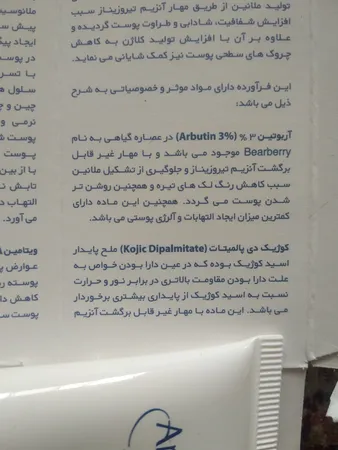 تولید ملانین از طریق مهار آنزیم تیروزیناز سبب
افزایش شفافیت، شادابی و طراوت پوست گردیده و
علاوه بر آن با افزایش تولید کلاژن به کاهش
چروک های سطحی پوست نیز کمک شایانی می نماید.
این فرآورده دارای مواد موثر و خصوصیاتی به شرح
ذیل می باشد:
آربوتین ۳ % (Arbutin 3%) در عصاره گیاهی به نام
Bearberry موجود می باشد و با مهار غیر قابل
برگشت آنزیم تیروزیناز و جلوگیری از تشکیل ملانین
سبب کاهش رنگ لک های تیره و همچنین روشن تر
شدن پوست می گردد. همچنین این ماده دارای
کمترین میزان ایجاد التهابات و آلرژی پوستی می باشد.
کوژیک دی پالمیتات (Kojic Dipalmitate) ملح پایدار
اسید کوژیک بوده که در عین دارا بودن خواص به
علت دارا بودن مقاومت بالاتری در برابر نور و حرارت
نسبت به اسید کوژیک از پایداری بیشتری برخوردار
می باشد. این ماده با مهار غیر قابل برگشت آنزیم
ملانوسی
پیش س
ایجاد پیگ
در پوست
با تسر
سلول ه
چین و چ
نرمی و
پوست ش
پوست
با از بین
تابش ن
التهاب د
می آورد.
ویتامین
عوارض پ
پوسته ر
کاهش دا
پوست س